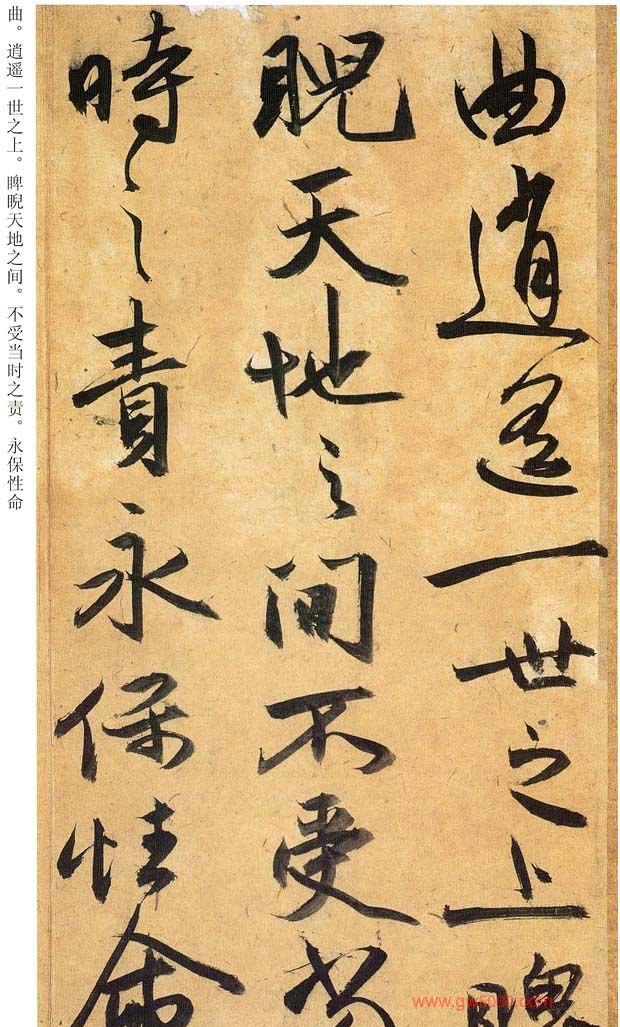 曲逍遙一世之上睥
睨天地之間不受當
時之責永保性命
曲。逍遥一世之上。睥睨天地之间。不受当时之责。永保性命